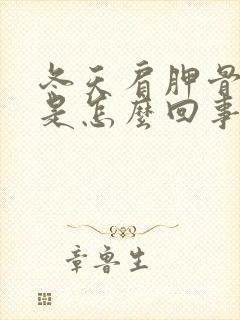 冬天肩胛骨
是怎麼回事
章魯生